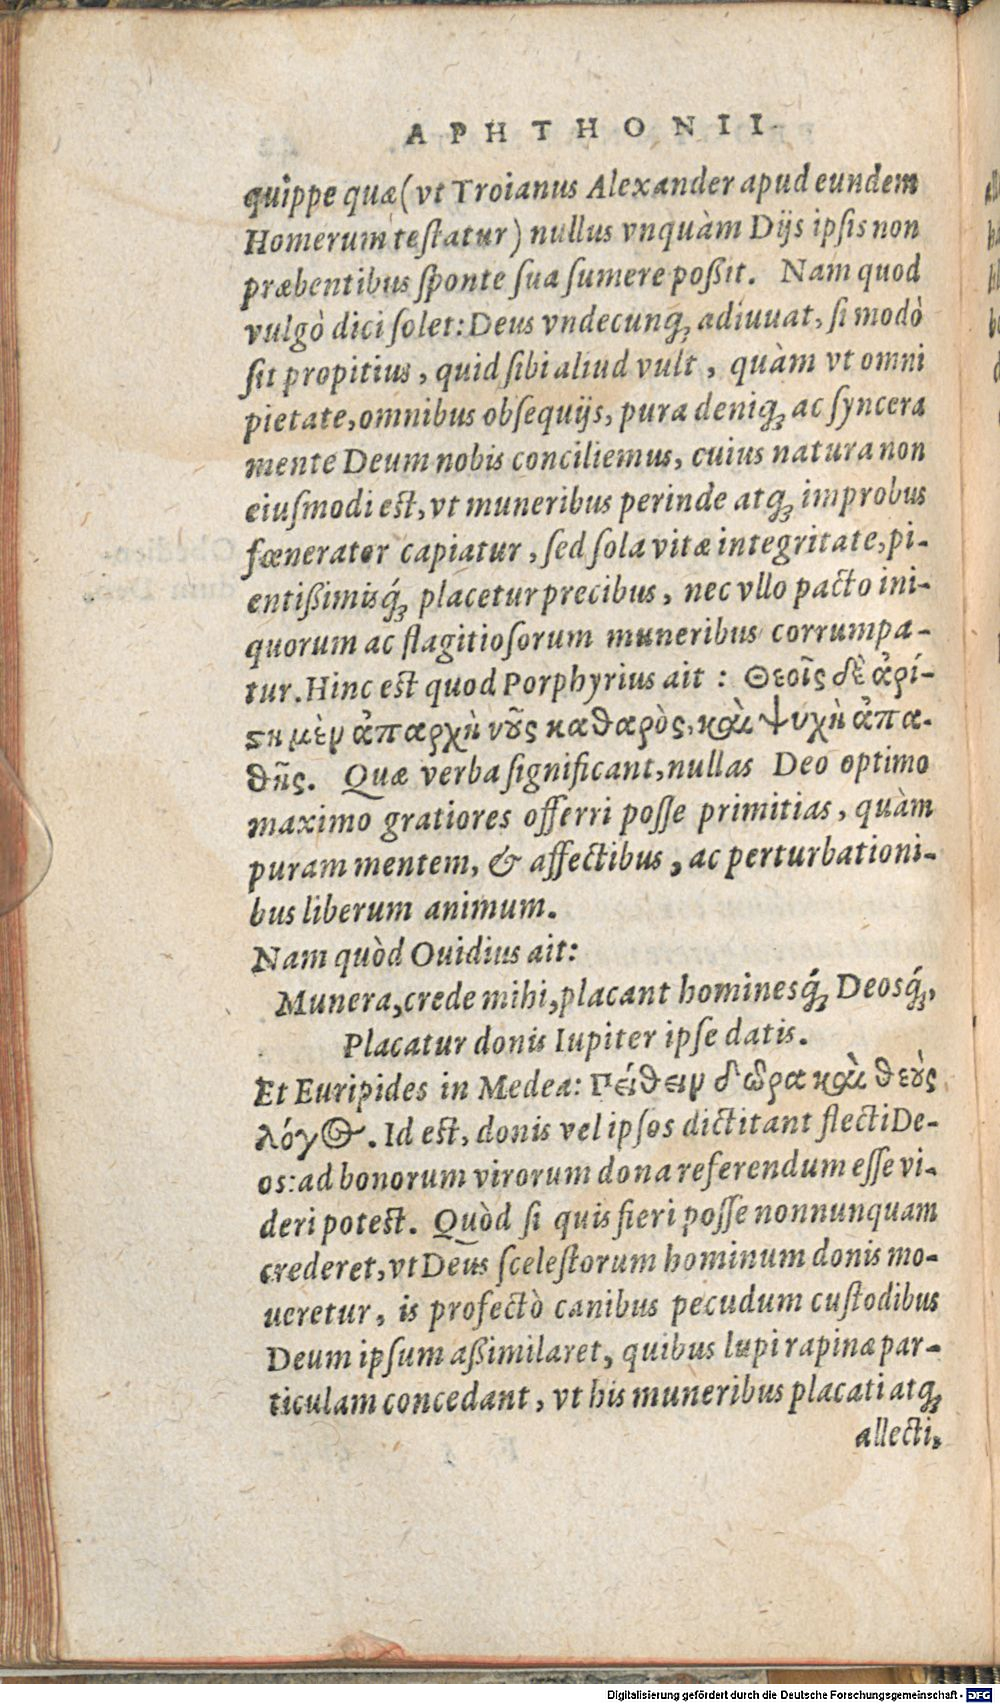 APHTHONII
quippe quæ (vt Troianus Alexander apud eundem
Homerum testatur) nullus vnquàm Dijs ipsis non
præbentibus sponte sua sumere poßit. Nam quod
vulgò dici solet: Deus vndecunq; adiuuat, si modò
sit propitius, quid sibi aliud vult, quàm vt omni
pietate, omnibus obsequijs, pura deniq; ac syncera
mente Deum nobis conciliemus, cuius natura non
eiusmodi est, vt muneribus perinde atq; improbus
fœnerator capiatur, sed sola vitæ integritate, pi-
entißimisq́; placetur precibus, nec vllo pacto ini-
quorum ac flagitiosorum muneribus corrumpa-
tur. Hinc est quod Porphyrius ait: Θεοῖς δὲ ἀρί-
ϛη μὲν ἀπαρχὴ νοῦς καθαρὸς, καὶ ψυχὴ ἀπα-
θὴς. Quæ verba significant, nullas Deo optimo
maximo gratiores offerri posse primitias, quàm
puram mentem, & affectibus, ac perturbationi-
bus liberum animum.
Nam quòd Ouidius ait:
Munera, crede mihi, placant hominesq́; Deosq́;,
Placatur donis Iupiter ipse datis.
Et Euripides in Medea: Πείθειν δῶρα καὶ θεοὺς
λόγος. Id est, donis vel ipsos dictitant flecti De-
os: ad bonorum virorum dona referendum esse vi-
deri potest. Quòd si quis fieri posse nonnunquam
crederet, vt Deus scelestorum hominum donis mo-
ueretur, is profectò canibus pecudum custodibus
Deum ipsum aßimilaret, quibus lupi rapinæ par-
ticulam concedant, vt his muneribus placati atq;
allecti,
Digitalisierung gefördert durch die Deutsche Forschungsgemeinschaft - DFG